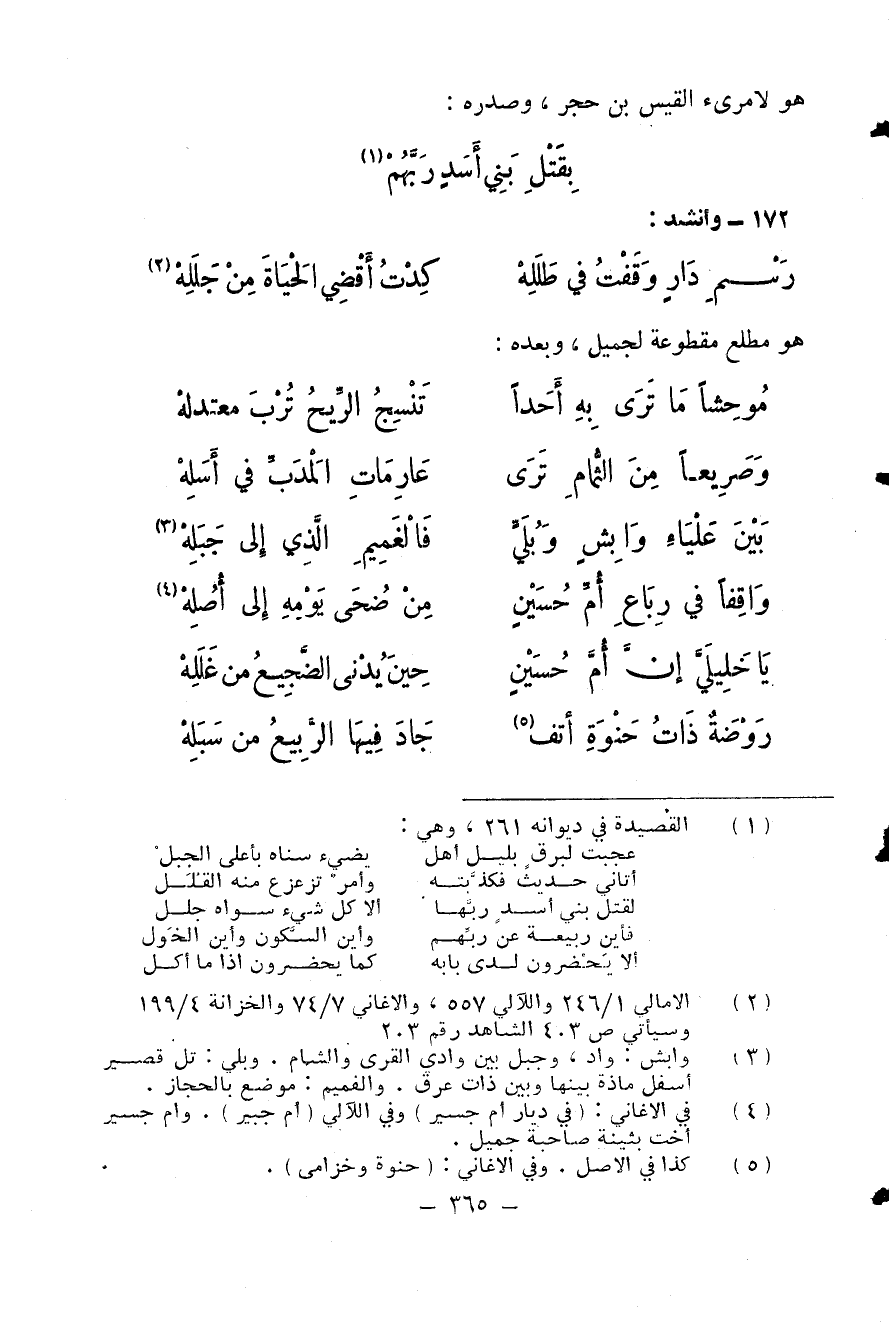 هو لامرىء القيس بن حجر ، وصدره :
بِقَتْلِ بَنِي أَسَدٍ رَبَّهُمْ (١)
١٧٢ – وأنشد :
رَسْـــمِ دَارٍ وَقَفْتُ فِي طَلَلِهْ كِدْتُ أَقْضِي الْحَيَاةَ مِنْ جَلَلِهْ (٢)
هو مطلع مقطوعة لجميل ، وبعده :
مُوحِشاً مَا تَرَى بِهِ أَحَداً تَنْسِجُ الرِّيحُ تُرْبَ معتدلهْ
وَصَرِيعاً مِنَ الثُّمامِ تَرَى عَارِمَاتِ الْمَدَبِّ فِي أَسَلِهْ
بَيْنَ عَلْيَاءِ وَابِشٍ وَبُلَيٍّ فَالْغَمِيمِ الَّذِي إِلى جَبَلِهْ (٣)
وَاقِفاً فِي رِبَاعِ أُمِّ حُسَيْنٍ مِنْ ضُحَى يَوْمِهِ إِلى أُصُلِهْ (٤)
يَا خَلِيلَيَّ إنَّ أُمَّ حُسَيْنٍ حِينَ يُدْنى الضَّجِيعُ من غَلَلِهْ
رَوْضَةٌ ذَاتُ حَنْوَةِ أتف (٥) جَادَ فِيهَا الرَّبِيعُ من سَبَلِهْ
(١) القصيدة في ديوانه ٢٦١ ، وهي :
عجبت لبرقٍ بليــل أهل يضيء سناه بأعلى الجبلْ
أتاني حــديثٌ فكذَّبتــه وأمرٌ تزعزع منه القلــل
لقتل بني أســدٍ ربَّهـا ألا كل شيء ســواه جلــل
فأين ربيعــة عن ربِّهــم وأين السَّكون وأين الخَوَل
ألا يَحْضرون لــدى بابه كما يحضــرون اذا ما أكــل
(٢) الامالي ٢٤٦/١ واللآلي ٥٥٧ ، والاغاني ٧٤/٧ والخزانة ١٩٩/٤
وسيأتي ص ٤٠٣ الشاهد رقم ٢٠٣
(٣) وابش : واد ، وجبل بين وادي القرى والشام . وبلي : تل قصــير
أسفل ماذة بينها وبين ذات عرق . والغميم : موضع بالحجاز .
(٤) في الاغاني : ( في ديار أم جسير ) وفي اللآلي ( أم جبير ) . وام جسير
أخت بثينة صاحبة جميل .
(٥) كذا في الاصل . وفي الاغاني : ( حنوة وخزامى ) .
– ٣٦٥ –